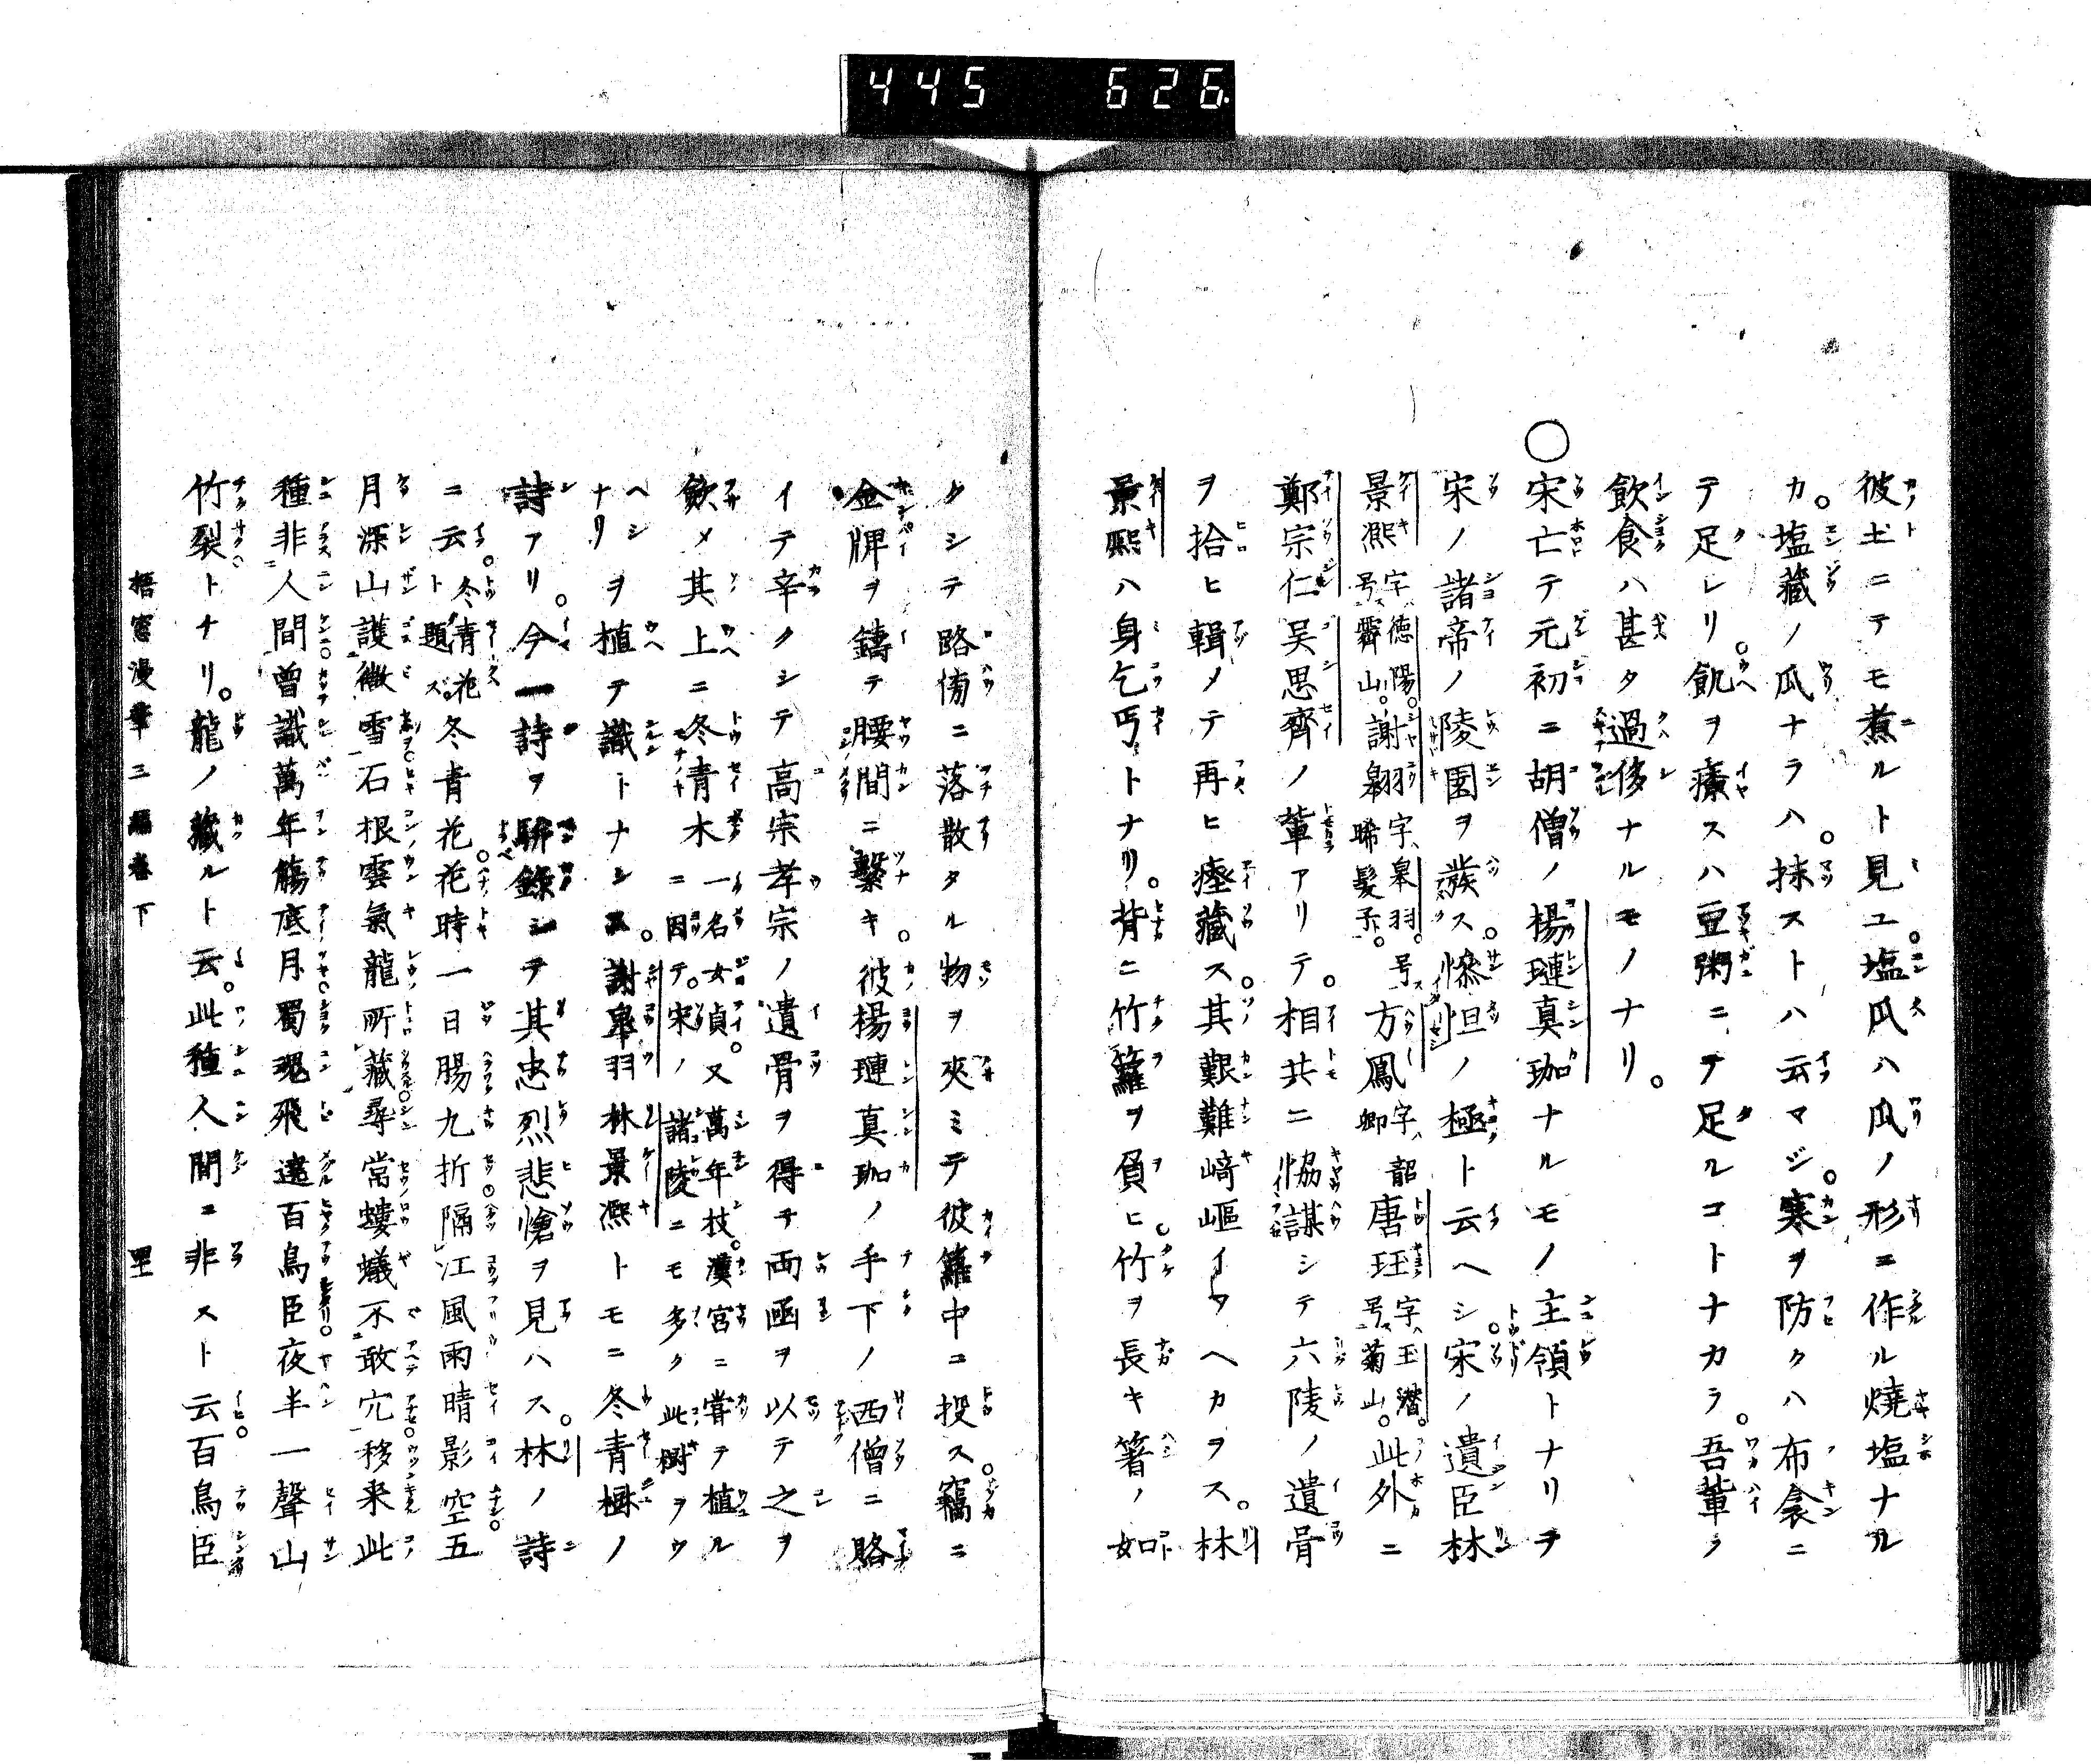 445 626
彼土ニテモ煮ルト見ユ。塩瓜ハ瓜ノ形ニ作ル燒塩ナル
カ。塩藏ノ瓜ナラハ。抹ストハ云マジ。寒ヲ防クハ布衾ニ
テ足レリ。飢ヲ療スハ豆粥ニテ足ルコトナカラ。吾輩ラ
飲食ハ甚タ過侈ナルモノナリ。
○宋亡テ元初ニ胡僧ノ楊璉真珈ナルモノ主領トナリテ
宋ノ諸帝ノ陵園ヲ蕟ス。慘怛ノ極ト云ヘシ。宋ノ遺臣林
景熈字ハ德陽。号ス霽山。謝翱字ハ皋羽。号ス晞髮子。方鳳字ハ韶卿唐珏字ハ玉潛。号ス菊山。此外ニ
鄭宗仁吴思齊ノ輩アリテ。相共ニ恊謀シテ六陵ノ遺骨
ヲ拾ヒ輯メテ再ヒ瘞藏ス。其艱難﨑嶇イタヘカヲス。林
景熈ハ身乞丐トナリ。背ニ竹籮ヲ負ヒ。竹ヲ長キ箸ノ如
クシテ路傍ニ落散タル物ヲ夾ミテ彼籮中ニ投ス。竊ニ
金牌ヲ鑄テ腰間ニ繫キ。彼楊璉真珈ノ手下ノ西僧ニ賂
イテ辛クシテ高宗孝宗ノ遺骨ヲ得テ両函ヲ以テ之ヲ
斂メ其上ニ冬青木一名女貞。又萬年枝。漢宮ニ嘗テ植ルモノナリ
ニ因テ。宋ノ諸陵ニモ多ク此樹ヲウヘシナリヲ植テ識トナシヌ。謝皋羽林景熈トモニ冬青樹ノ
詩アリ。今一詩ヲ聨錄シテ其忠烈悲愴ヲ見ハス。林ノ詩
ニ云。冬青花ト題ズ。冬青花。花時一日腸九折隔江風雨晴影空五
月深山護微雪石根雲氣龍所藏尋常螻蟻不敢穴移来此
種非人間曽識萬年觴底月蜀䰟飛遶百鳥臣夜半一聲山
竹裂トナリ。龍ノ藏ルト云。此種人間ニ非スト云。百鳥臣
梧窓漫筆三編卷下